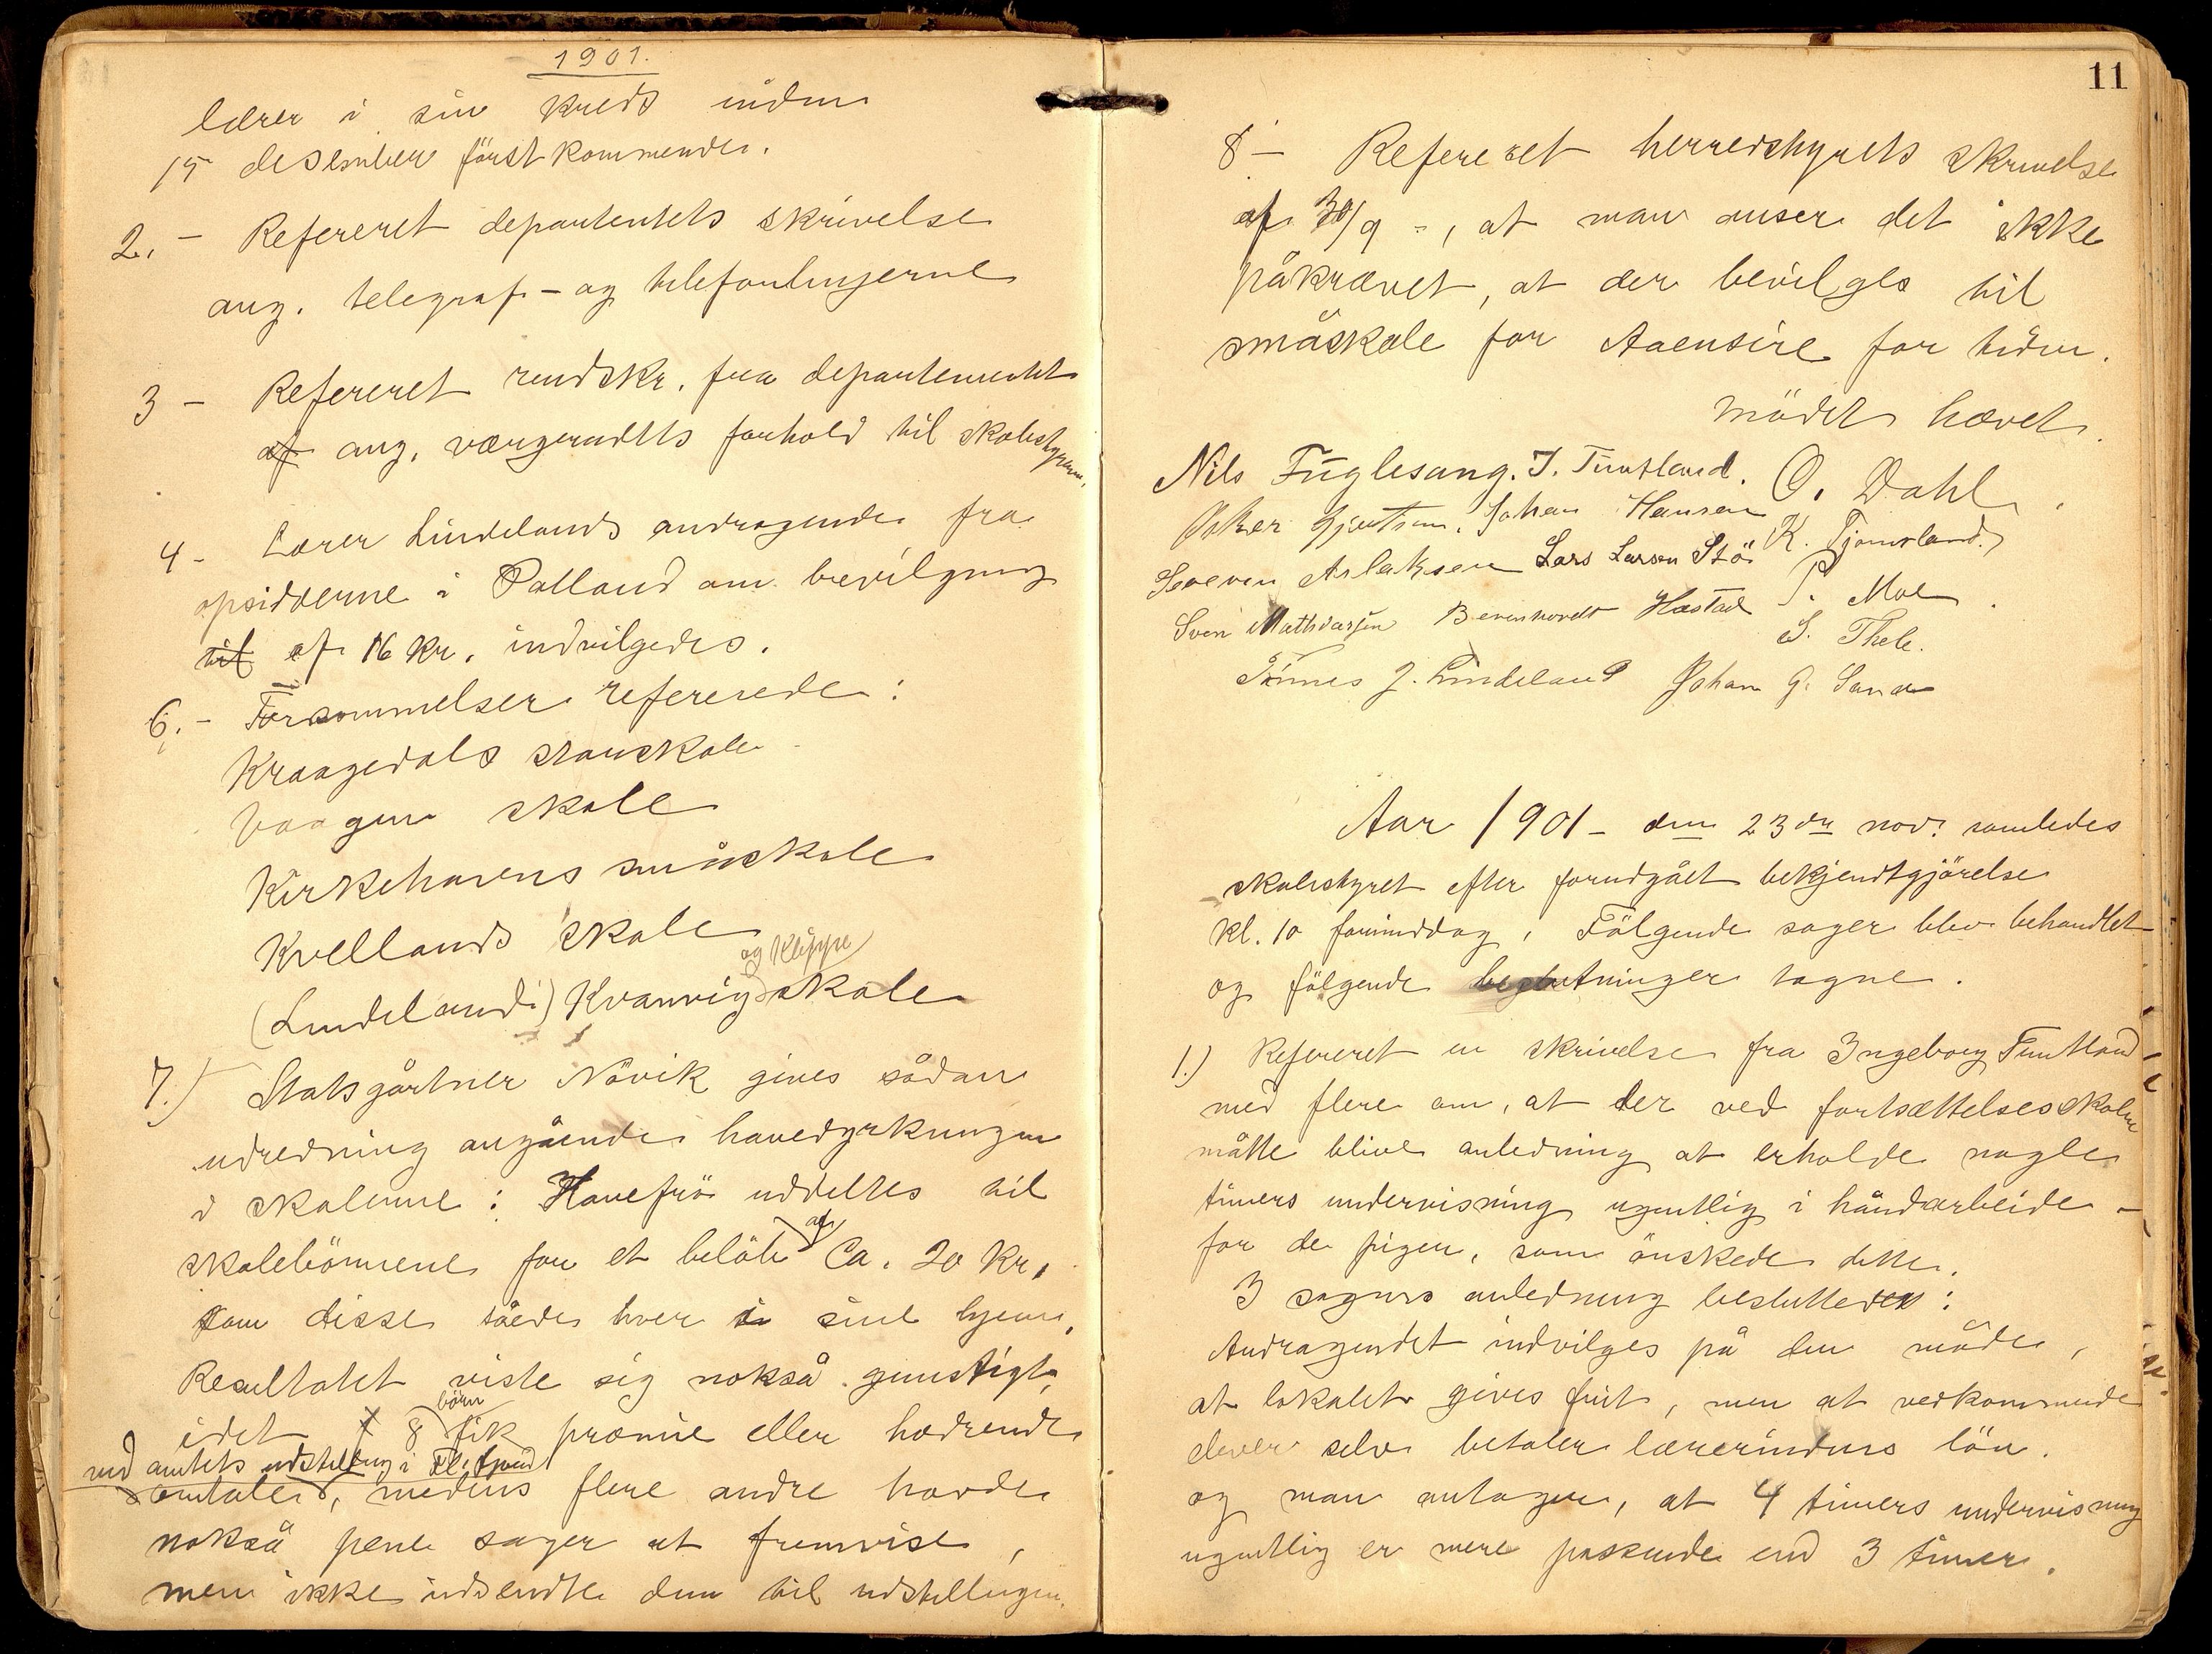 1901.
lærer i sin kreds inden
15 desember förstkommende.
2. - Refereret departentets skrivelse
ang. telegraf- og telefonlinjerne
3 - Refereret rundskr. fra departementet
af ang. værgerådets forhold til skolestyrerne.
4 - Lærer Lindelands andragende fra
opsidderne i Palland om bevilgning
til af 16 kr. indvilgedes.
6. - Forsömmelser refererede:
Kraagedals storskole
Vaagen skole
Kirkehavens småskole
Kvellands skole
og Kleppe
(Lindeland:) Kvanvig skole
7.) Statsgårtner Növik gives sådan
udredning angående havedyrkningen
i skolerne: Havefrö uddeltes til
skolebörnene for et belöb af Ca. 20 kr,
som disse såede hver i sine hjem,
Resultatet viste sig nokså gunstigt,
idet 8 börn fik præmie eller hædrende
ved amtets udstilling i Flekkefjord
omtale, medens flere andre havde
nokså pene sager at fremvise,
men ikke indsendte dem til udstillingen.
11
8 - Refereret herredstyrets skrivelse
af 30/9 -, at man anser det ikke
påkrævet, at der bevilges til
småskole for Aaensire for tiden.
mödet hævet.
Nils Fuglesang. J. Tuntland. O. Dahl.
Johan Hansen K. Tjomsland.
Severin Aslaksen Lars Larsen Stö P. Moe
Sven Mathiassen Berenhardt Hastad S. Thele.
Tönnes J. Lindeland Johan G. Sand
Aar 1901 - den 23de nov. samledes
skolestyret efter forudgået bekjendtgjörelse
kl. 10 formiddag, Fölgende sager blev behandlet
og fölgende beslutninger tagne.
1.) Refereret en skrivelse fra Ingeborg Tuntland
med flere om, at der ved fortsættelsesskolen
måtte blive anledning at erholde nogle
timers undervisning ugentlig i håndarbeide -
for de piger, som önskede dette.
I sagens anledning besluttedes:
Andragendet indvilges på den måde,
at lokalet gives frit, men at vedkommende
elever selv betaler lærerindens lön.
og man antager, at 4 timers undervisning
ugentlig er mere passende end 3 timer.